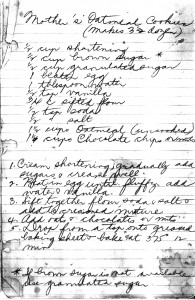 "Mother's" Oatmeal Cookies
(makes 3½ doz.)
½ cup shortening
½ cup brown sugar *
½ cup granulated sugar
1 beaten egg
1 tblespoon water
½ vanilla
¾ c sifted flour
½ tsp soda
½ " salt
1½ cups Oatmeal (uncooked)
½ cups Chocolate chips or nuts
1. Cream shortening, gradually add
sugars & cream well.
2. Beat in egg until fluffy, add
water & vanilla.
3. Sift together flour, soda, salt &
add to creamed mixture
4. Add oats & chocolate or nuts
5. Drop from a tsp onto greased
baking sheet & bake at 375° 12
min.
* If brown sugar is not available
use granulated sugar